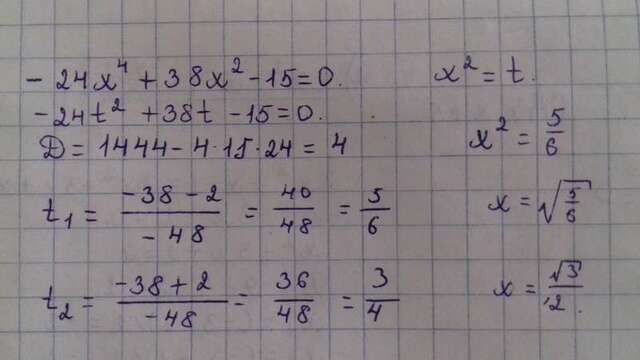 -24x⁴ + 38x² - 15 = 0. x² = t.
-24t² + 38t - 15 = 0.
D = 1444 - 4·15·24 = 4 x² = 5/6
t₁ = (-38 - 2)/(-48) = 40/48 = 5/6 x = √(5/6)
t₂ = (-38 + 2)/(-48) = 36/48 = 3/4 x = √3/2